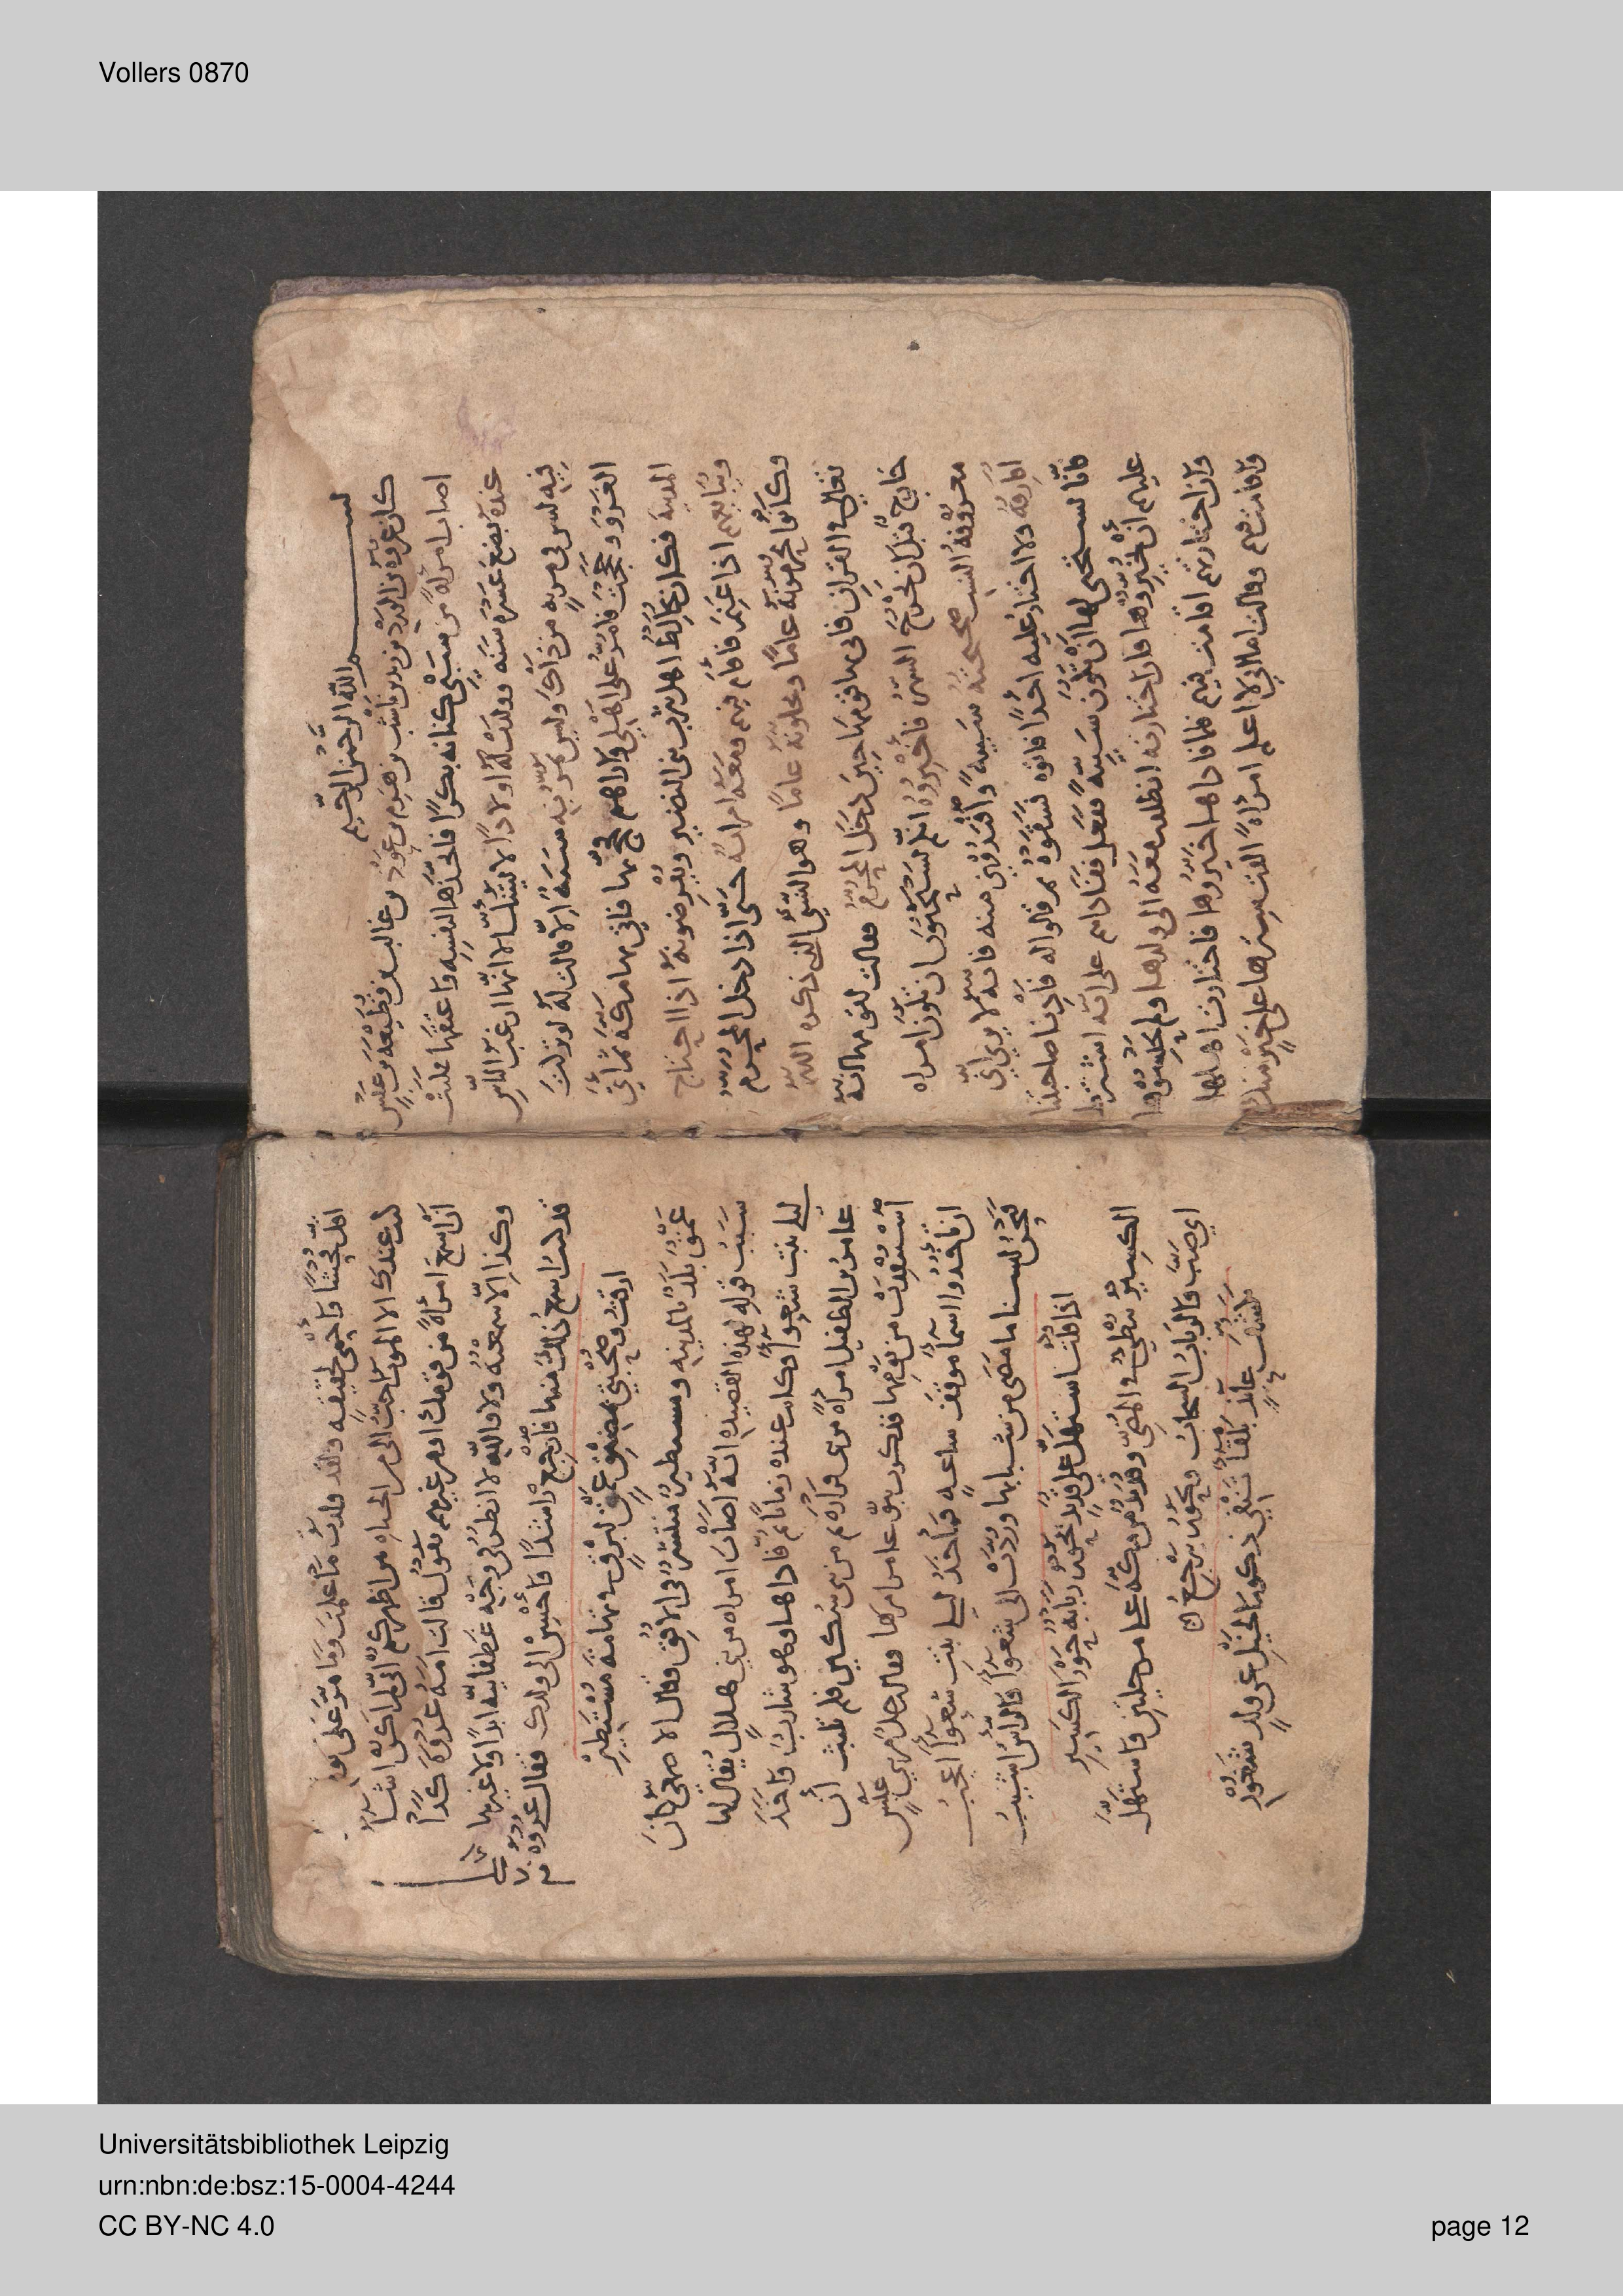 Vollers 0870
بسم الله الرحمن الرحيم
كان عروة بن الورد بن زيد بن ناشب بن هرم بن عوذ بن غالب بن قطيعة بن عبس
اصاب امرأة من بني كنانه بكرا فاتخذها لنفسه واعتقها فلبثت
عنده بضع عشرة سنه وولدت له اولادا لا يشك الا انها ارغب الناس
فيه ليس في مريه من ذاك وليس تمر به سنة الا قالت له لو تركت
الغزو وحججت فامر على اهلي واراهم فحج بها فاتى بها مكة ثم اتى
المدينة فكان يخالط اهل يثرب بني النضير ويقرضونه اذا احتاج
ويبايعهم اذا غنم فاقام فيهم ومعه امراته حتى اذا دخل المحرم
وكانوا يحرمونه عاما ويحلونه عاما وهو النسي الذي ذكره الله
تعالى في القران فاتى بها قومها حين دخل المحرم فقالت لقومها انه
خارج قبل ان يخرج النسء فاخبروه انكم تستحيون ان تكون امراه
معروفة النسب صحيحته سبية وافتدوني منه فانه لا يرى اني
افارقه ولا اختار عليه احدا فاتوه فسقوه ثم قالوا له فادنا صاحبتنا
فانا نستحي لها ان تكون سبيه ففعل ففاداهم على انه اشترط
عليهم ان تخيروها فان اختارته انطلقت معه الى ولدها
وان اختارتهم اقامت فيهم فلما فاداها خيروها فاختارت اهلها
وكانت فيهم وقالت اما اني لا اعلم امراة القت سترها على خير منك
اقل فحشا واحمى لحقيقه ولقد ولدت ما علمت وما مر علي يوم
لدن عندك الا الموت احب الي من الحياه من اظهركم اني لم اكن اشا
ان اسمع امرأة من قومك او من غيرهم تقول قالت امة عروة كذا
وكذا الا سمعته ولا والله لا انظر في وجه غطفانيه ابدا ولا غيرها
قد كنت اسمع ذلك منها فارجع راشدا واحسن الى ولدك فقال عروة
ارقت وصحبتي بمضيق عمق لبرق من تهامة مستطير
عمق بلد بالمدينه ومستطير منتشر في الافق قال الاصمعي كان
سبب قوله لهذه القصيده انه اصاب امراه من بني هلال يقال لها
ليلى بنت شعوا فكانت عنده زمانا ثم فاداها وهو شارب واخذ
عامر بن الطفيل امراة من بني فزارة ثم من بني سكين فلم تلبث ان
استنقذت من يومها فذكرت بنو عامر امرها فقال رجل من بني عبس
ان تاخذوا اسما موقف ساعه فمأخذ ليلى بنت شعوا اعجب
فنحن لبسنا ما مضى من شبابها وردت الى شعوا والراس اشيب
اذا قلت استهل على قديد يحور ربابه حور الكسير
الكسير بطي في المشي وقديد من مكة على مرحلتين واستهل
اي صب والرباب السحاب ويحور يرجع
تكشف عايذ بلقا تنفي ذكور الخيل عن ولد شغور
Universitätsbibliothek Leipzig
urn:nbn:de:bsz:15-0004-4244
CC BY-NC 4.0
page 12